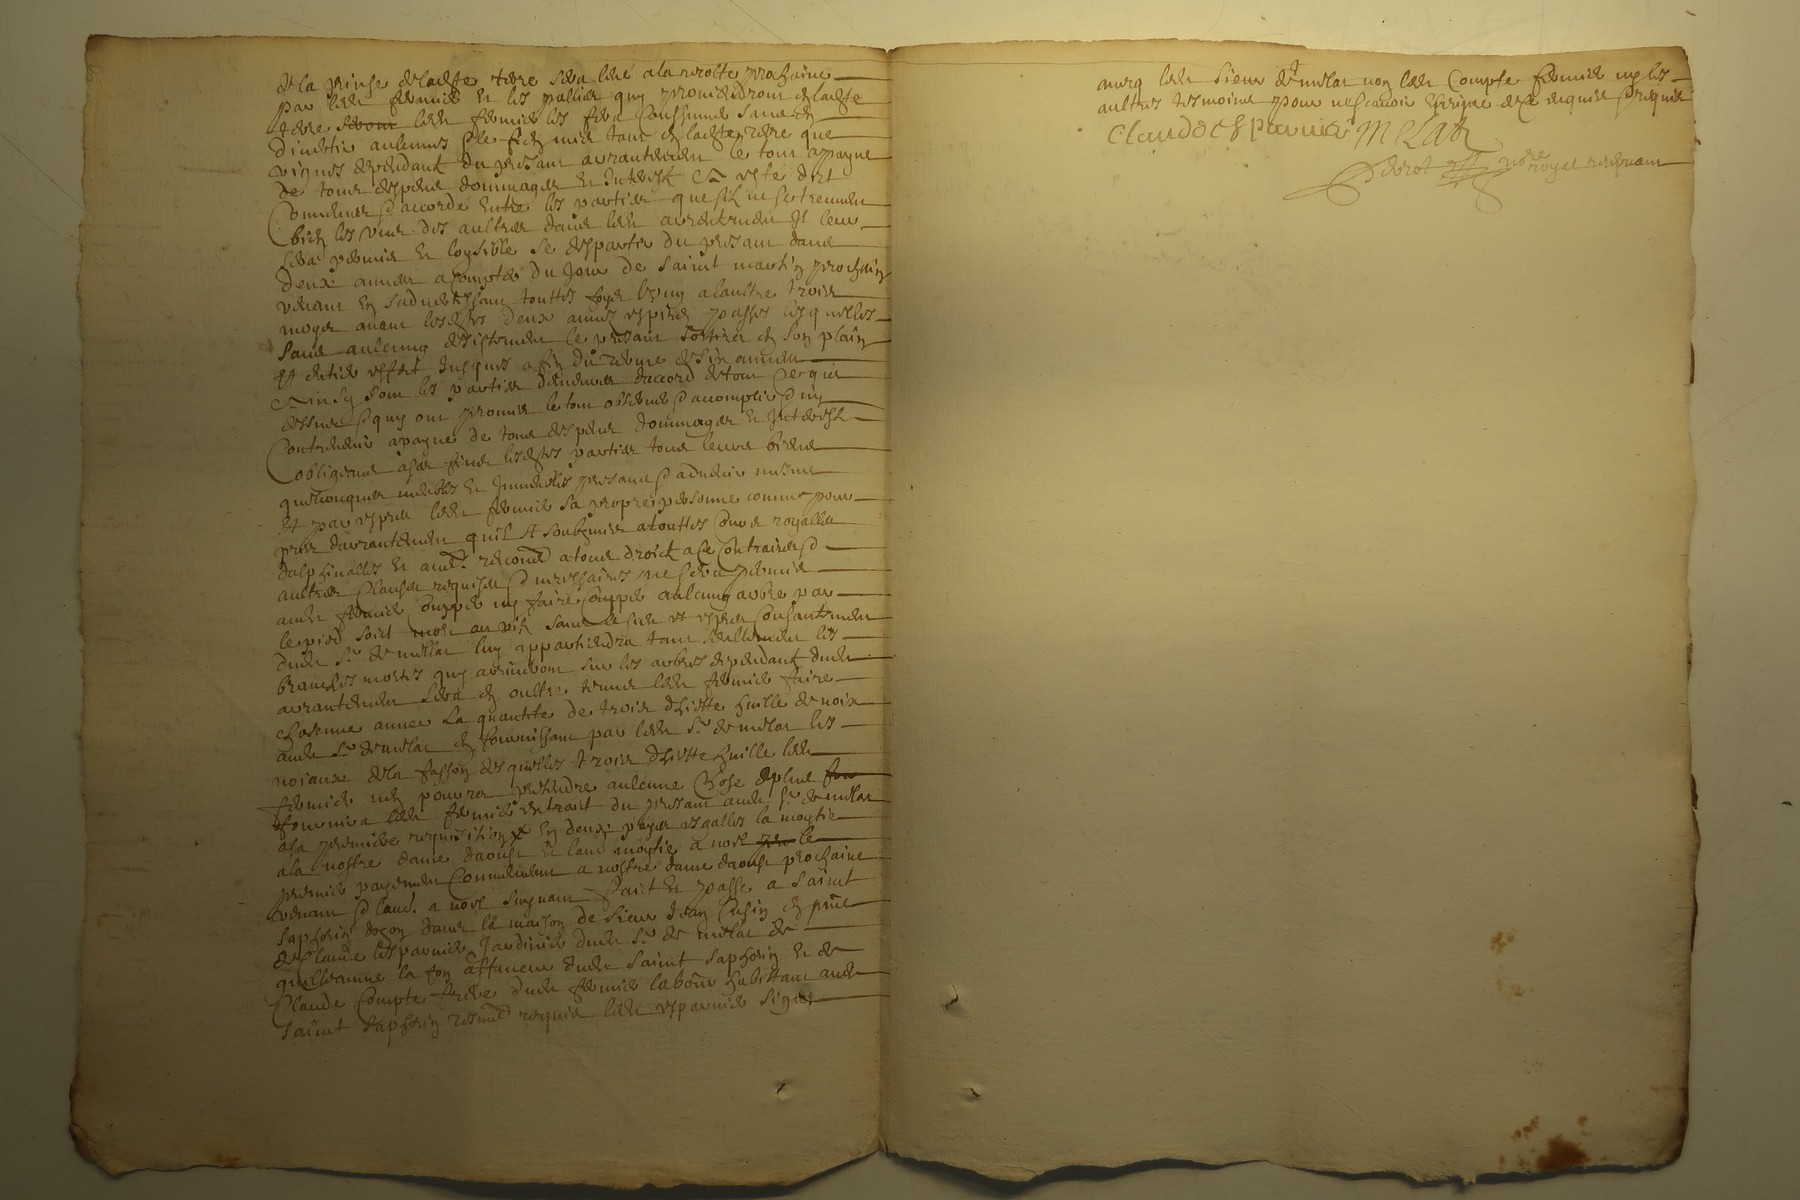 de la prinse de ladte terre sera levé a la recolte prochaine
par ledt fermier et les pallier quy proviendront de ladte
terre ledt fermier les fera consumer sans en
divertir aulcunes ple fien mier tant de ladte terre que
vignes dependant du present arrantement le tout a payne
de tous despens dommages et interest et a esté dict
convenu et accordé entre les parties que sil ne se treuvent
bien les uns des aultres dans ledt arrentement il leur
sera permis et loysible se despartir du present dans
deux annees a compter du jour de saint martin prochain
venant en sadvertissant touttes foys lung a laultre trois
moys avant lesdtes deux annes expirées passes lesquelles
sans aulcung desistement le present sortira en son plain
et entier effect jusques a fin du terme de six annees
Ainsy sont les parties demeures daccord de tout ce que
dessus et quy ont promis le tout observer et accomplir et ny
contrevenir a payne de tous despens dommages et interestz
obligeant a ses fins lesdtes parties tous leurs biens
quelconques meubles et immeubles presans et advenir mesme
Et par exprès ledt fermier sa propre personne comme pour
pris darrantement quil A soubzmis a touttes cours royalles
dalphinalles et autt. renond a tous droictz a ce contraires et
aultres clauses requises et necessaires ne sera permis
audt fermier coupper ny faire coupper aulcung arbre par
le pied soict mort ou vif sans le sceu et exprès consantement
dudt Sr de mellat luy appartiendra tant seullement les
branches mortes quy arriveront sur les arbres dependant dudt
arrantement sera en oultre tenu ledt fermier faire
chascune annee la quantité de trois huille de noix
audt Sr de mellat en fournissant par ledt Sr de mellat les
noiaux de la fasson desquelles trois huille ledt
fermier nen pourra pretendre aulcune chose de plus
fournira ledt fermier extraict du present audt Sr de mellat
a sa premiere requisition et en deux payes esgalles la moytie
a la nostre dame daoust et laut moytie a noel le
premier payement commencent a nostre dame daoust prochaine
venant et laut. a noel suyvant Faict et passé a saint
saphorin dozon dans la maison de sieur Jean en pnce
de Claude esparvier jardinier dudt Sr de mellat de
guilleaume la fon affaneur dudt saint saphorin et de
Claude Compte frere dudt fermier labour habittant audt
saint saphorin tesmd requis ledt esparvier signé
avecq ledt sieur de mellat non ledt Compte fermier ny les
aultres tesmoins pour ne scavoir escrire de ce enquis et requis
Claude Esparvier Melat
derot nore royal recepvant